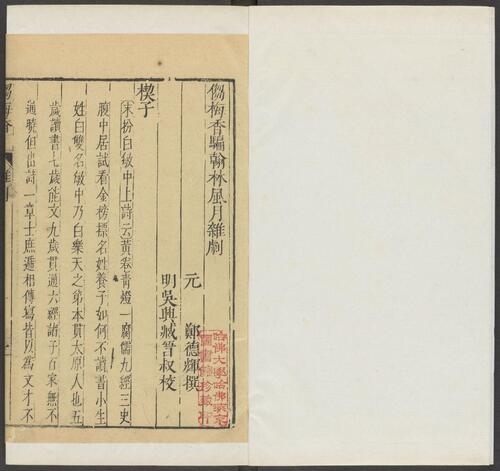 㑳梅香騙翰林風月雜劇
元 鄭德輝撰
明吳興臧晉叔校
楔子
末扮白敏中上詩云黃卷青燈一腐儒九經三史
腹中居試看金榜標名姓養子如何不讀書小生
姓白雙名敏中乃白樂天之弟本貫太原人也五
歲讀書七歲能文九歲貫通六經諸子百家無不
通曉但出詩一章士庶遞相傳寫皆以為文才不
㑳梅香
雜劇
哈佛大學哈佛燕京
圖書館珍藏印